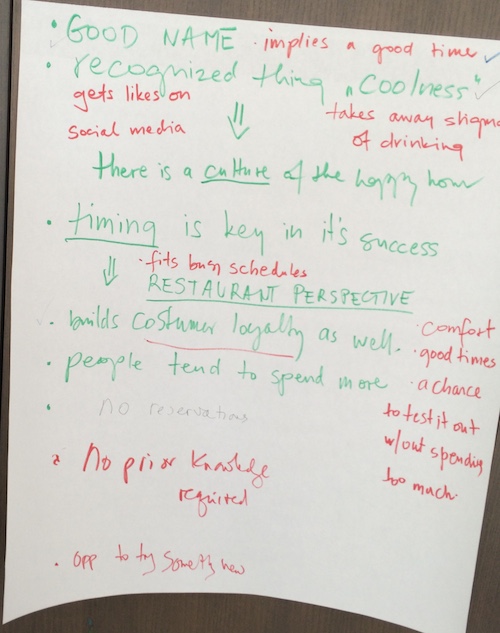 • GOOD NAME • implies a good time ✓
• recognized thing „Coolness"
gets likes on
social media
takes away stigma
of drinking
⇓
there is a culture of the happy hour
• timing is key in it's success
⇓ • fits busy schedules
RESTAURANT PERSPECTIVE
• builds costumer loyalty as well.
• people tend to spend more
• comfort
• good times
• a chance
to test it out
w/out spending
too much.
• no reservations
• No prior Knowledge
required
• opp to try Somethg new